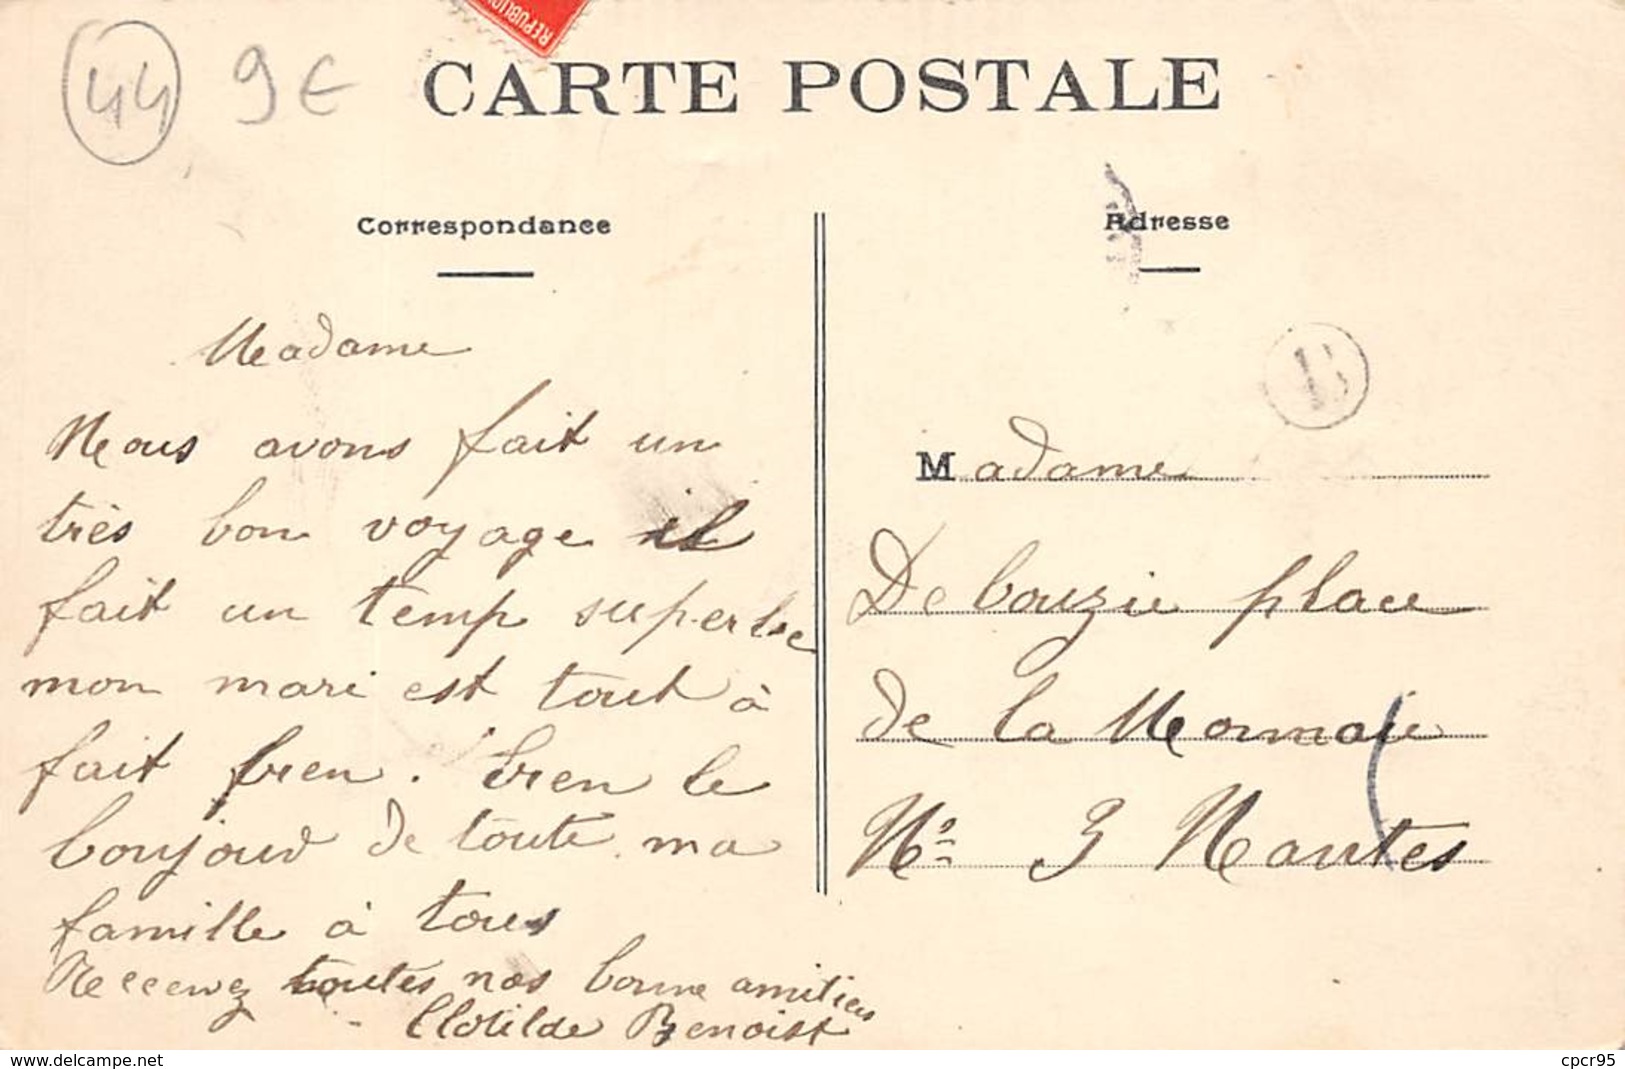 REPUBLIQUE
44 9 €
CARTE POSTALE
Correspondance
Madame
Nous avons fait un
très bon voyage il
fait un temp superbe
mon mari est tout à
fait bien. bien le
boujour de toute ma
famille à tous
Recevez toutes nos bonne amitiers
Clotilde Benoist
Adresse
Madame
De bouzie place
de la Monnaie
No 3 Nantes
www.delcampe.net
cpcr95